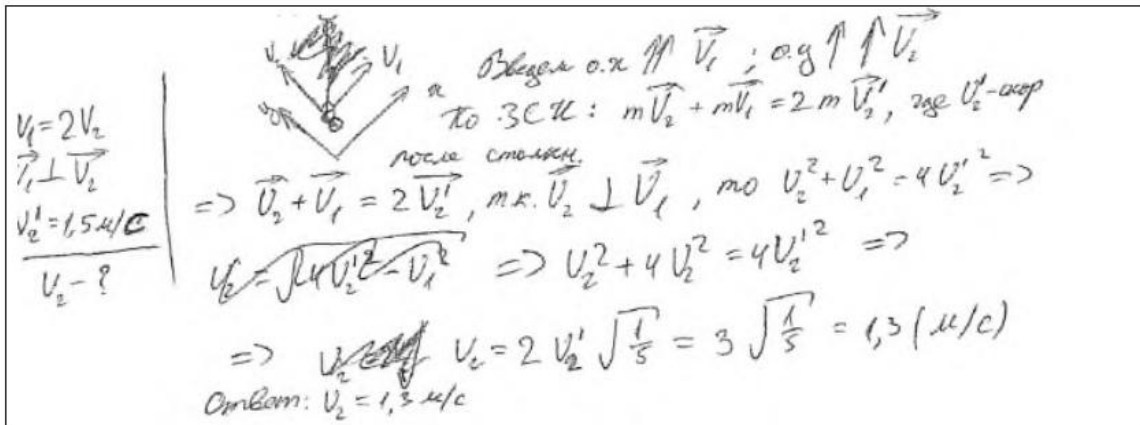 V₁ = 2V₂
V⃗₁ ⊥ V⃗₂
V₂' = 1,5 м/с
V₂ - ?
V₁
x
y
Введем о.х ⇈ V⃗₁ ; о.у ↑↑ V⃗₂
По ЗСИ: mV⃗₂ + mV⃗₁ = 2mV⃗₂', где V₂' - скор
после столкн.
=> V⃗₂ + V⃗₁ = 2V⃗₂', т.к. V⃗₂ ⊥ V⃗₁, то V₂² + V₁² = 4V₂'² =>
V₂ = √(4V₂'² - V₁²) => V₂² + 4V₂² = 4V₂'² =>
=> V₂ = 2V₂' √(1/5) = 3 √(1/5) = 1,3 (м/с)
Ответ: V₂ = 1,3 м/с